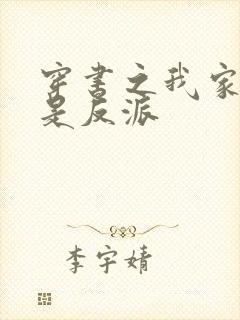 穿书之我家
是反派
李宇婧